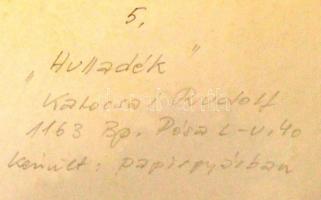 5.
"Hulladék"
Kalocsai Rudolf
1163 Bp. Dósa L-u. 40
Készült: papírgyárban